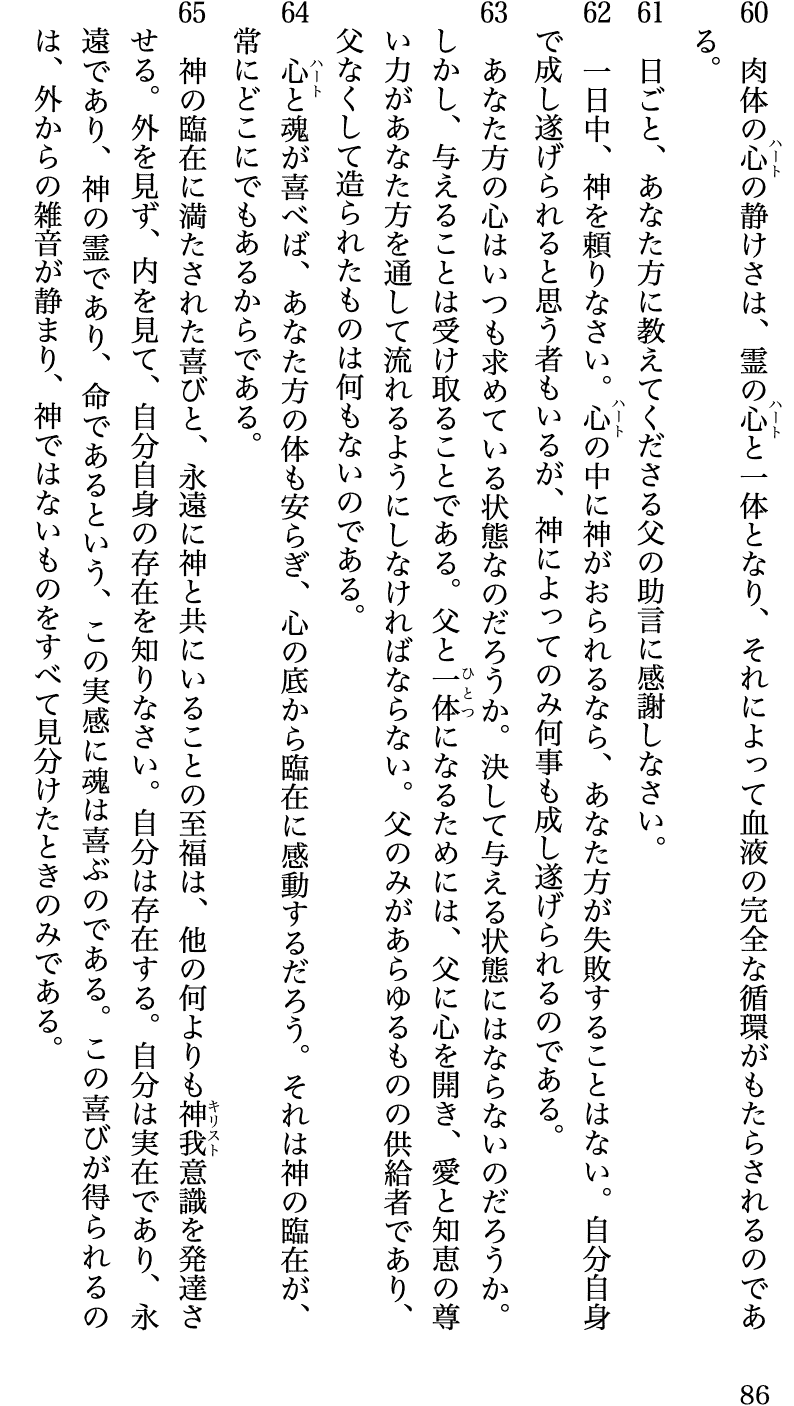 60　肉体の心の静けさは、霊の心と一体となり、それによって血液の完全な循環がもたらされるのであ
る。
61　日ごと、あなた方に教えてくださる父の助言に感謝しなさい。
62　一日中、神を頼りなさい。心の中に神がおられるなら、あなた方が失敗することはない。自分自身
で成し遂げられると思う者もいるが、神によってのみ何事も成し遂げられるのである。
63　あなた方の心はいつも求めている状態なのだろうか。決して与える状態にはならないのだろうか。
しかし、与えることは受け取ることである。父と一体になるためには、父に心を開き、愛と知恵の尊
い力があなた方を通して流れるようにしなければならない。父のみがあらゆるものの供給者であり、
父なくして造られたものは何もないのである。
64　心と魂が喜べば、あなた方の体も安らぎ、心の底から臨在に感動するだろう。それは神の臨在が、
常にどこにでもあるからである。
65　神の臨在に満たされた喜びと、永遠に神と共にいることの至福は、他の何よりも神我意識を発達さ
せる。外を見ず、内を見て、自分自身の存在を知りなさい。自分は存在する。自分は実在であり、永
遠であり、神の霊であり、命であるという、この実感に魂は喜ぶのである。この喜びが得られるの
は、外からの雑音が静まり、神ではないものをすべて見分けたときのみである。
ハート
ハート
ハート
ひとつ
ハート
キリスト
86